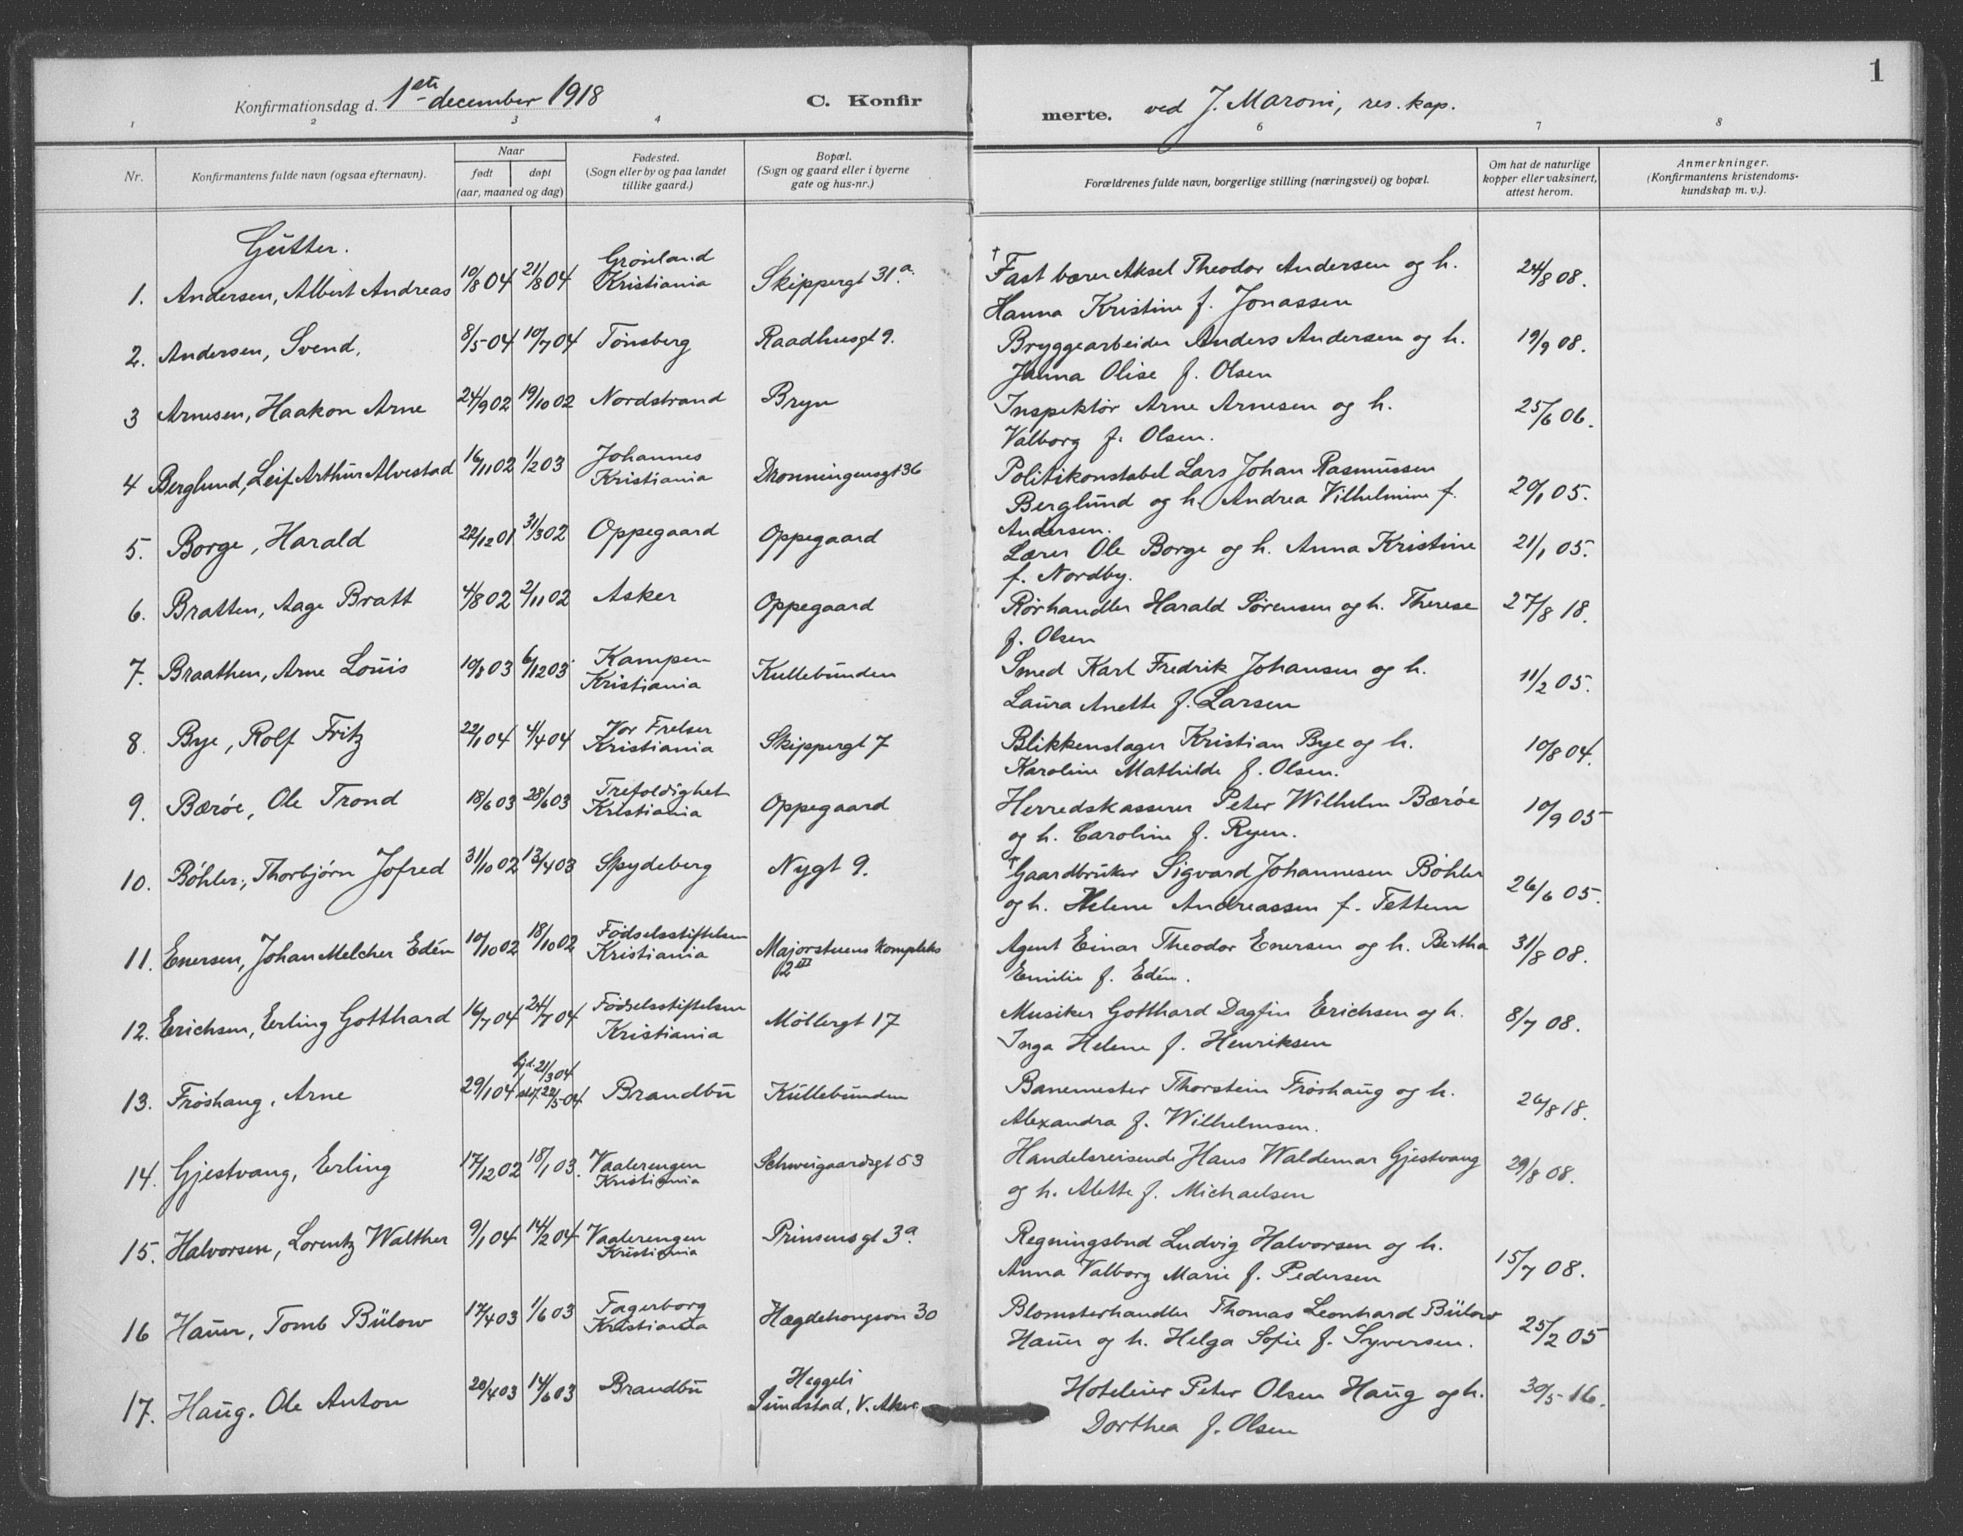 1
Konfirmationsdag d. 1ste december 1918 C. Konfir merte. ved J. Maroni, res. kap.
1 2 3 4 6 7 8
Nr. Konfirmantens fulde navn (ogsaa efternavn). Naar født døpt (aar, maaned og dag) Fødested. (Sogn eller by og paa landet tillike gaard.) Bopæl. (Sogn og gaard eller i byerne gate og hus-nr.) Forældrenes fulde navn, borgerlige stilling (næringsvei) og bopæl. Om hat de naturlige kopper eller vaksinert, attest herom. Anmerkninger. (Konfirmantens kristendoms-kundskap m. v.).
Gutter.
1. Andersen, Albert Andreas 10/8 04 21/8 04 Grønland Kristiania Skippergt 31a. † Fast bærer Aksel Theodor Andersen og h. 24/8 08.
Hanna Kristine f. Jonassen
2. Andersen, Svend, 8/5 04 10/7 04 Tønsberg Raadhusgt 9. Bryggearbeider Anders Andersen og h. 19/9 08.
Janna Olise f. Olsen
3 Arnesen, Haakon Arne 24/9 02 19/10 02 Nordstrand Bryn Inspektør Arne Arnesen og h. 25/6 06.
Valborg f. Olsen.
4 Berglund, Leif Arthur Alvestad 16/11 02 1/2 03 Johannes Kristiania Dronningensgt 36 Politikonstabel Lars Johan Rasmussen
Berglund og h. Andrea Vilhelmine f. 20/1 05.
Andersen.
5. Borge, Harald 22/12 01 31/3 02 Oppegaard Oppegaard Lærer Ole Borge og h. Anna Kristine 21/1 05.
f. Nordby.
6. Bratten, Aage Bratt 4/8 02 2/11 02 Asker Oppegaard Rørhandler Harald Sørensen og h. Therese 27/8 18.
f. Olsen
7. Braathen, Arne Louis 10/8 03 6/12 03. Kampen Kristiania Kullebunden Smed Karl Fredrik Johansen og h. 11/2 05.
Laura Anette f. Larsen
8. Bye, Rolf Fritz 22/1 04 4/4 04 Vor Frelser Kristiania Skippergt 7 Blikkenslager Kristian Bye og h. 10/8 04.
Karoline Mathilde f. Olsen.
9. Bærøe, Ole Trond 18/6 03 28/6 03 Trefoldighet Kristiania Oppegaard Herredskasserer Peter Wilhelm Bærøe 10/9 05
og h. Caroline f. Ryen.
10. Bøhler, Thorbjørn Jofred 31/10 02 13/4 03 Spydeberg Nygt 9. † Gaardbruker Sigvard Johannesen Bøhler 26/6 05.
og h. Helene Andreassen f. Tettem
11. Enersen, Johan Melcher Edén 10/10 02 18/10 02 Fødselsstiftelsen Kristiania Majorstuens kompleks 2III Agent Einar Theodor Enersen og h. Bertha 31/8 08.
Emilie f. Edén.
12. Erichsen, Erling Gotthard 16/7 04 24/7 04 Fødselsstiftelsen Kristiania Møllergt 17 Musiker Gotthard Dagfin Erichsen og h. 8/7 08.
Inga Helene f. Henriksen
13. Frøshaug, Arne 29/1 04 hjd. 21/3 04 stf. 22/5 04 Brandbu Kullebunden Banemester Thorstein Frøshaug og h. 26/8 18.
Alexandra f. Wilhelmsen.
14. Gjestvang, Erling 17/12 02 18/1 03. Vaalerengen Kristiania Schweigaardsgt 53 Handelsreisende Hans Waldemar Gjestvang 29/8 08.
og h. Alette f. Michaelsen
15. Halvorsen, Lorentz Walther 9/1 04 14/2 04 Vaalerengen Kristiania Prinsensgt 3a Regningsbud Ludvig Halvorsen og h. 15/7 08.
Anna Valborg Marie f. Pedersen
16 Hauer, Tomb Bülow 17/4 03 1/6 03 Fagerborg Kristiania Hægdehougsvn 30 Blomsterhandler Thomas Leonhard Bülow 25/2 05
Hauer og h. Helga Sofie f. Syversen.
17. Haug, Ole Anton 20/4 03 14/6 03 Brandbu Heggeli Sundstad, V. Aker. Hoteleier Peter Olsen Haug og h. 30/5 16.
Dorthea f. Olsen